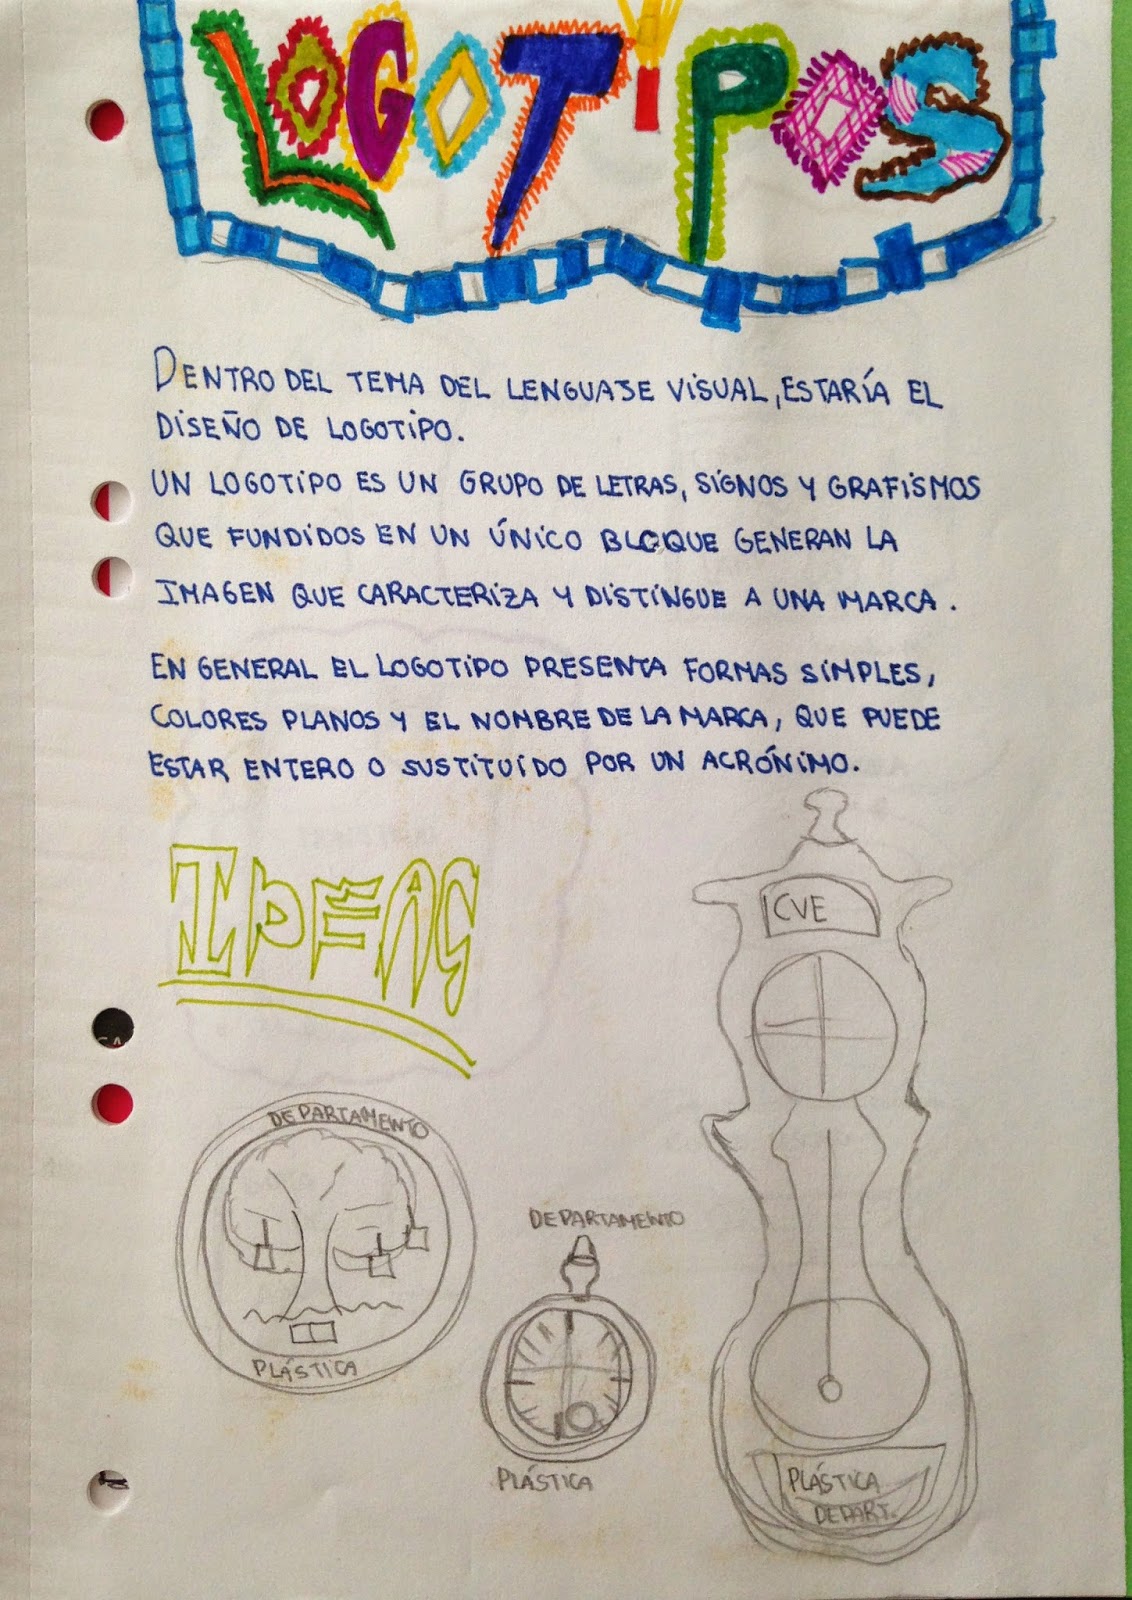 LOGOTiPOS
DENTRO DEL TEMA DEL LENGUAJE VISUAL, ESTARÍA EL
DISEÑO DE LOGOTIPO.
UN LOGOTIPO ES UN GRUPO DE LETRAS, SIGNOS Y GRAFISMOS
QUE FUNDIDOS EN UN ÚNICO BLOQUE GENERAN LA
IMAGEN QUE CARACTERIZA Y DISTINGUE A UNA MARCA.
EN GENERAL EL LOGOTIPO PRESENTA FORMAS SIMPLES,
COLORES PLANOS Y EL NOMBRE DE LA MARCA, QUE PUEDE
ESTAR ENTERO O SUSTITUIDO POR UN ACRÓNIMO.
IDEAS
CVE
DEPARTAMENTO
PLÁSTICA
DEPARTAMENTO
PLÁSTICA
PLÁSTICA
DEPART.